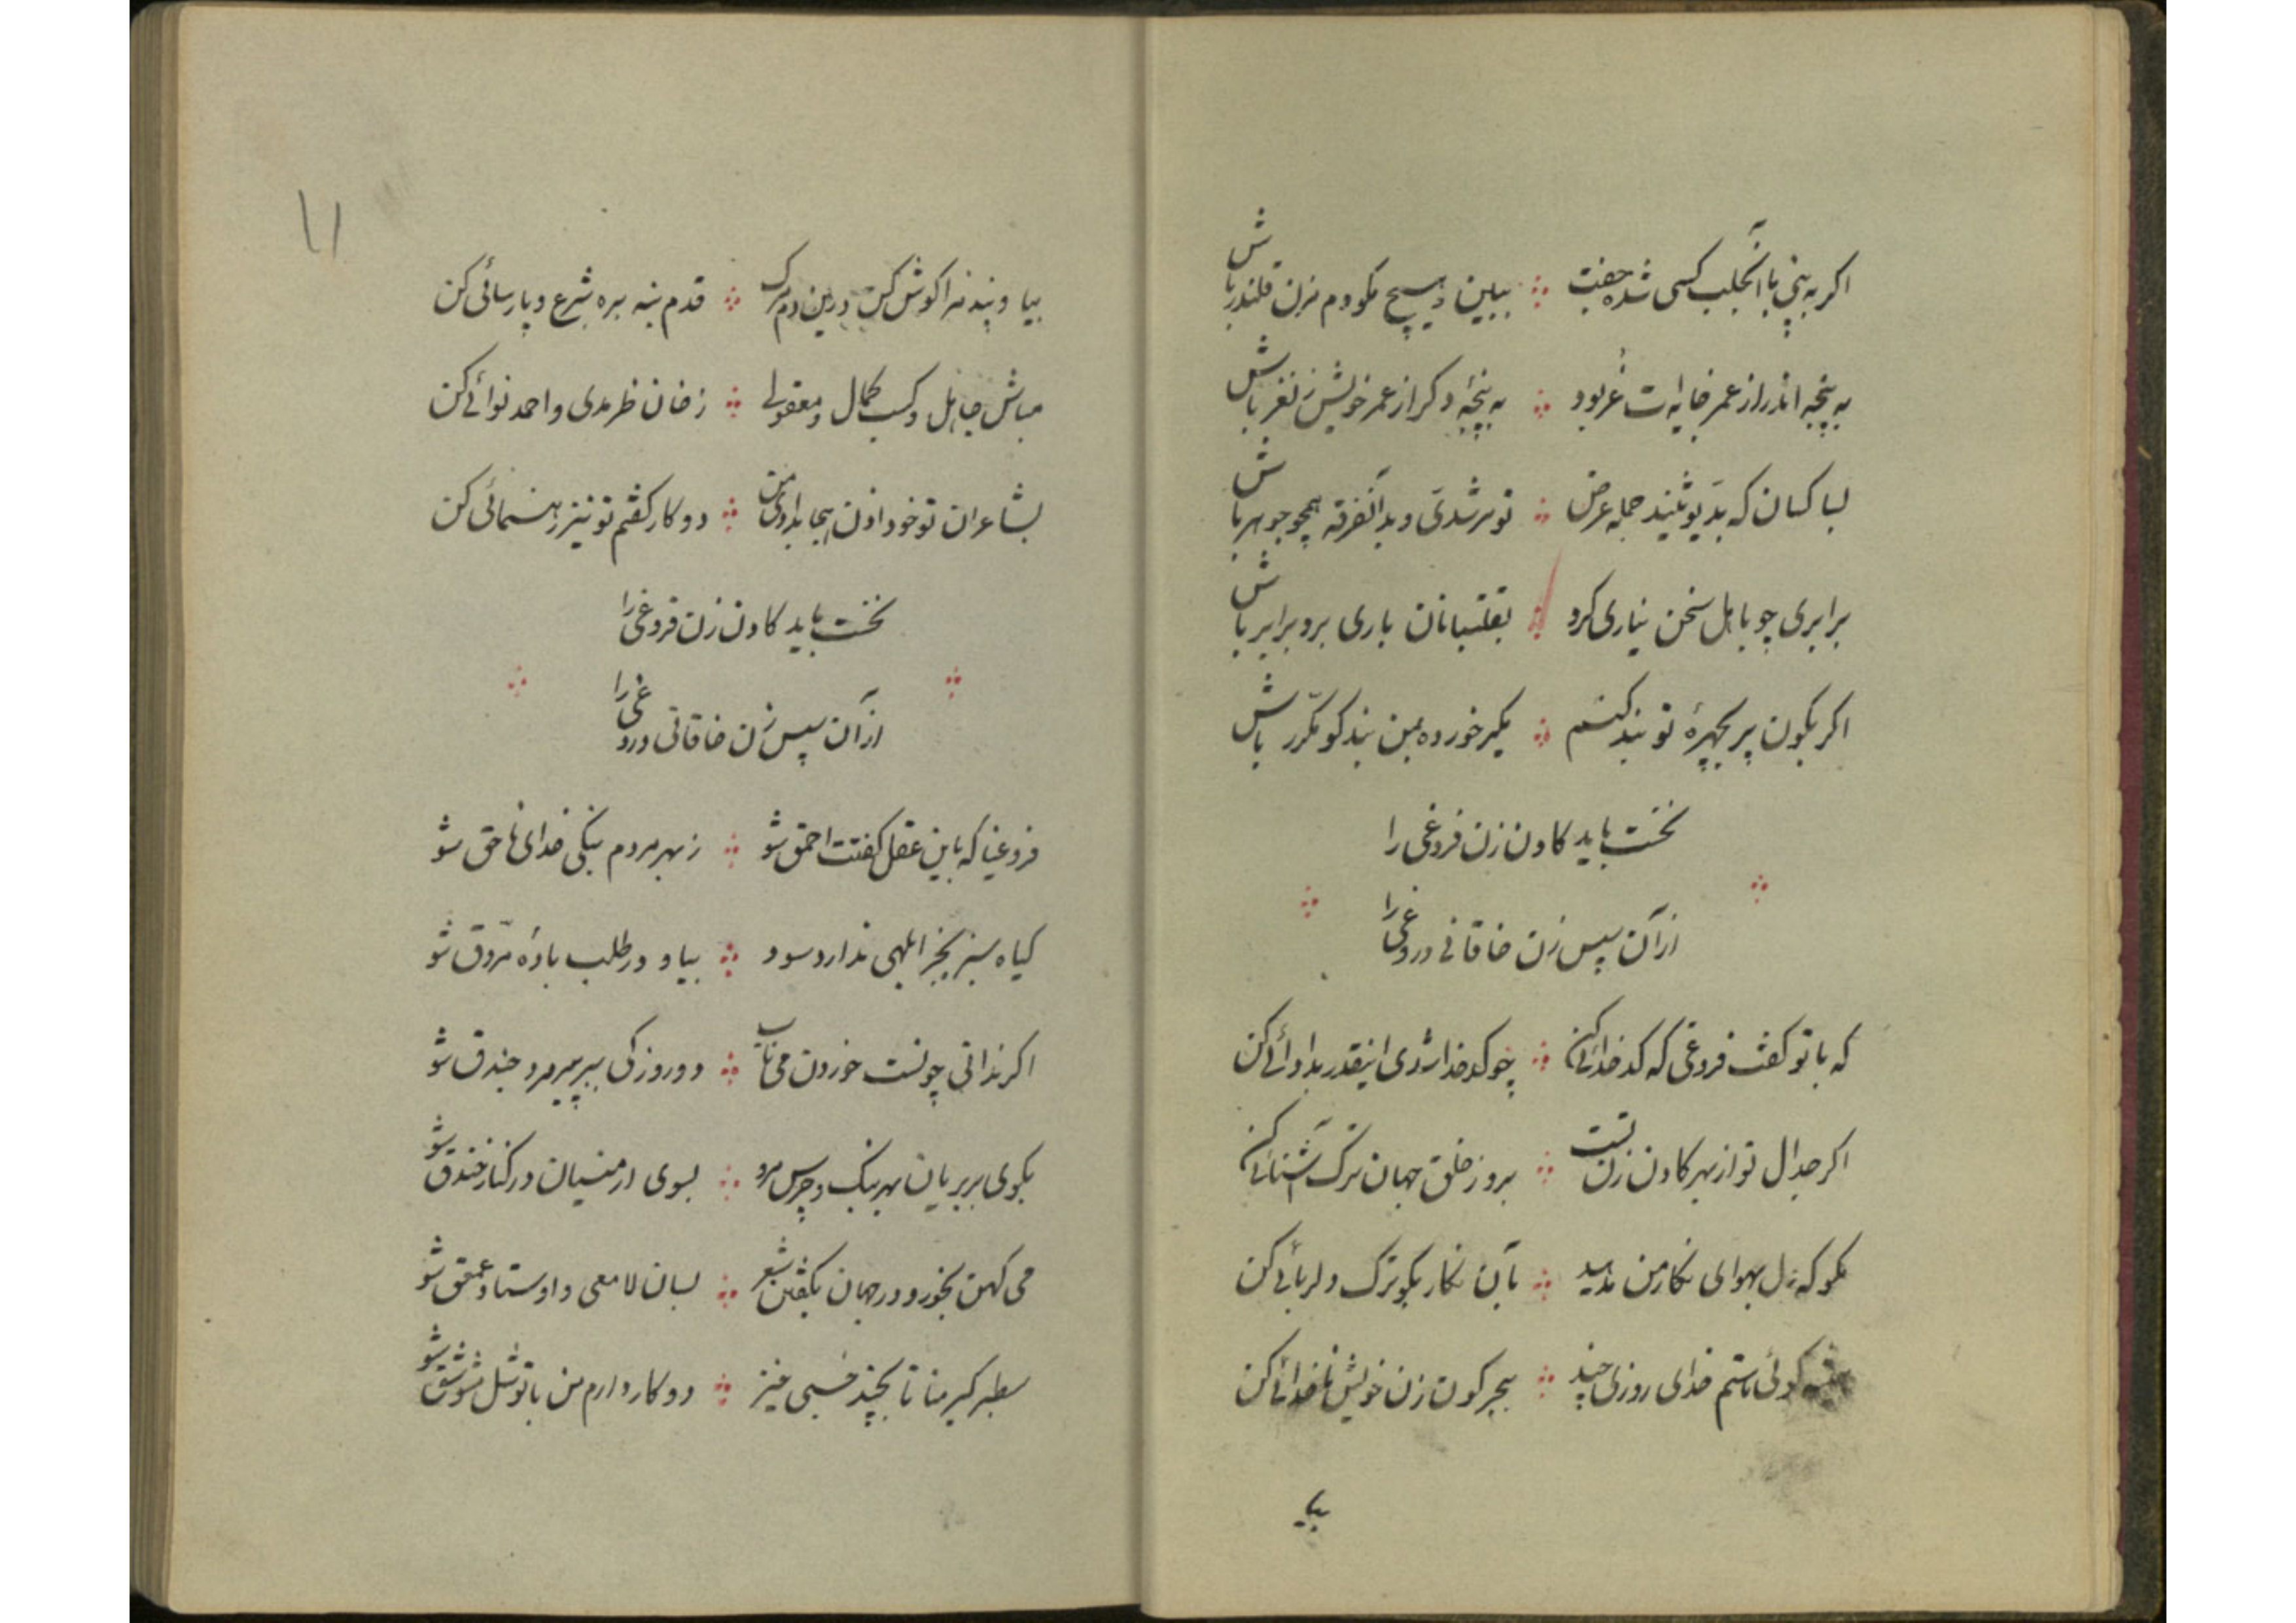 اگر به بینی با آنجلب کسی شده جفت ببین و هیچ مگو دم مزن قلندر باش
به پنجه اندر از عمر خایه‌ات غر بود به پنجهٔ دگر از عمر خویش زنغر باش
بسا کسان که بدیوثیند جمله عرض تو مرشدی و بدآنفرقه همچو جوهر باش
برابری چو باهل سخن نیاری کرد بقلتبانان باری برو برابر باش
اگر بکون پریچهرهٔ تو بند کنم بکیر خورده مبین بند گو مکرر باش
نخست باید گادن زن فروغی را
از آن سپس زن خاقانی دروغی را
که با تو گفت فروغی که کدخدائی کن چو کدخدا شدی اینقدر بدادائی کن
اگر جدال تو از بهر گادن زن تست برو ز خلق جهان ترک آشنائی کن
مگو که دل بهوای نگار من ندهید بآن نگار بگو ترک دلربائی کن
گوئی ناستم خدای روزی چند ببحر کون زن خویش ناخدائی کن
بیا
۱۱
بیا و پند مرا گوش کن درین دم مرگ قدم بنه بره شرع و پارسائی کن
مباش جاهل و کسب کمال و معقول ز خان ظرمدی و احمد نوائی کن
بشاعران تو خود اذن هجا بدادی من دو کار گفتم تو نیز رهنمائی کن
نخست باید گادن زن فروغی را
از آن سپس زن خاقانی دروغی را
فروغیا که باین عقل گفتت احمق شو ز بهر مردم بنگی خدای ناحق شو
گیاه سبز بجز ابلهی ندارد سود بیا و در طلب بادهٔ مروق شو
اگر ندانی چونست خوردن می ناب دو روزکی ببر پیرمرد جندق شو
بکوی بربریان بهر بنگ و چرس مرو بسوی ارمنیان در کنار خندق شو
می کهن بخور و در جهان بگفتن شعر بسان لامعی و اوستاد عمعق شو
سطبر کیر منا تا بچند خسبی خیز دو کار دارم من با تو شل مشو شق شو